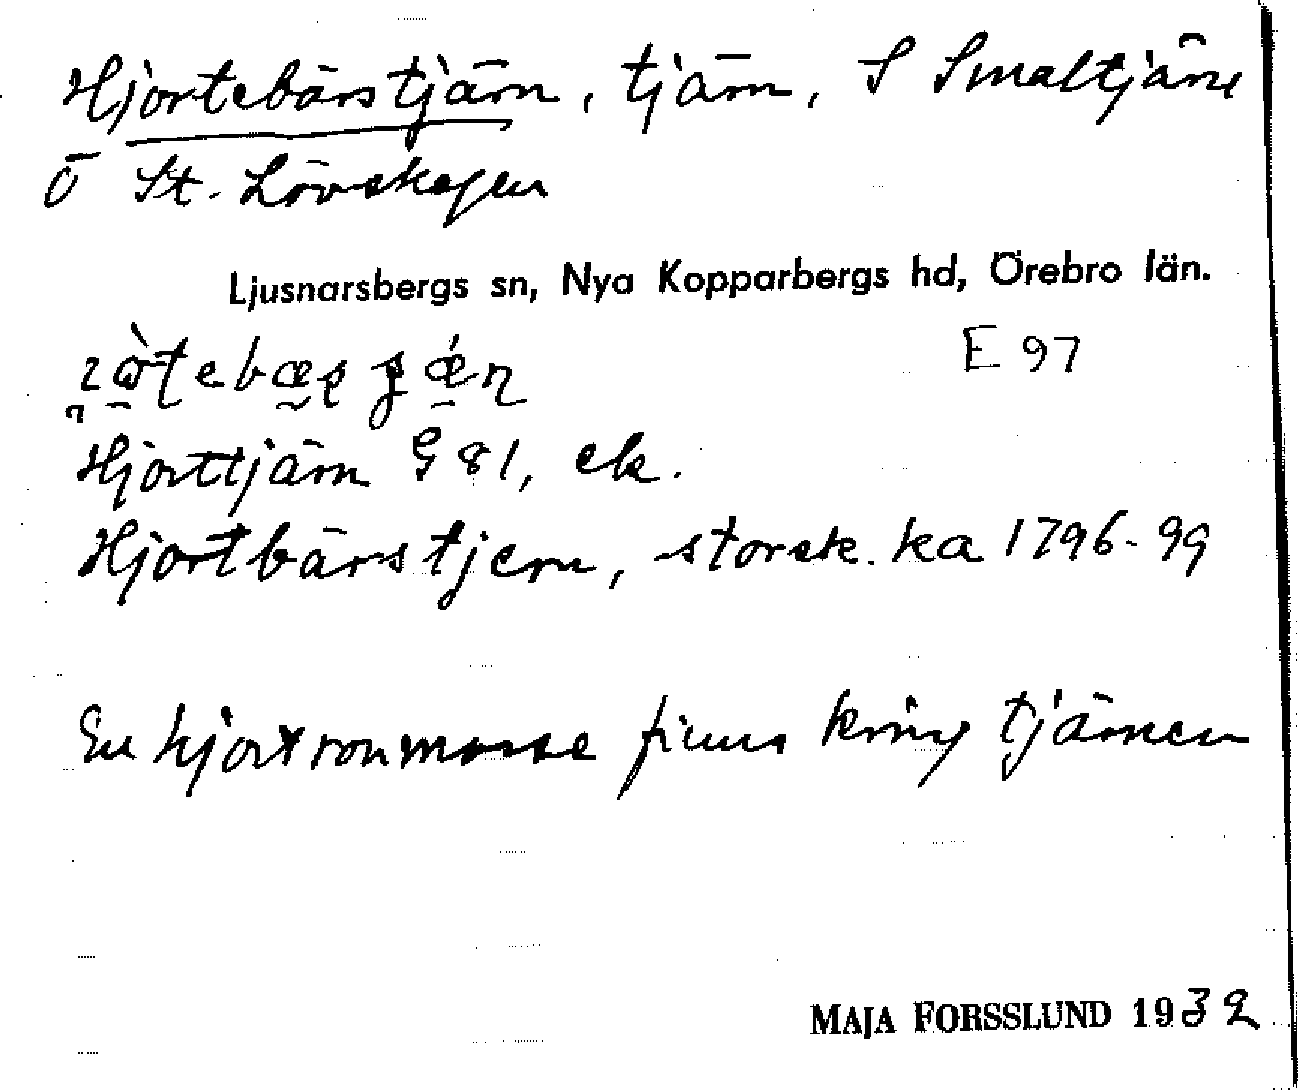 Hjortebärstjärn, tjärn, S Smaltjärn
Ö St. Lövskogen
Ljusnarsbergs sn, Nya Kopparbergs hd, Örebro län.
E 97
Hjorttjärn G 81, ek.
Hjortbärstjern, storsk. ka 1796-99
En hjortronmosse finns kring tjärnen
MAJA FORSSLUND 1932